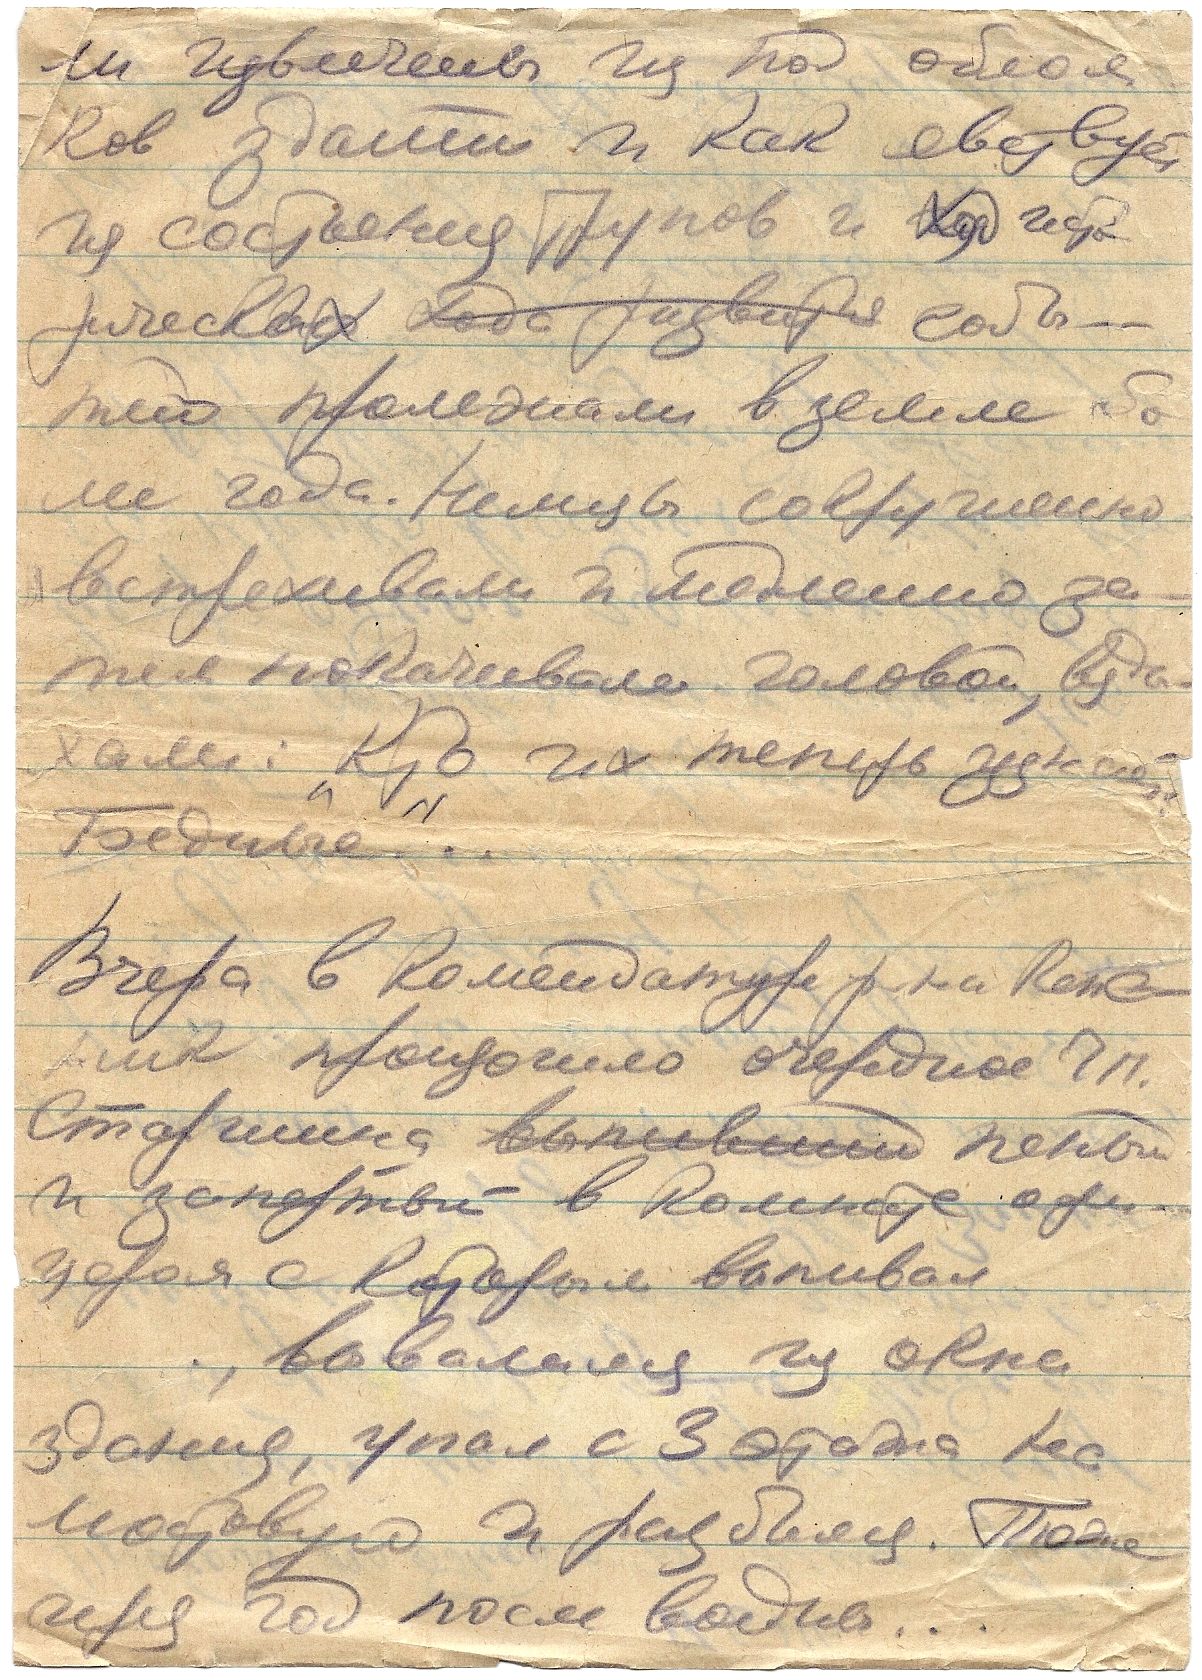 ли извлечены из под облом
ков здани и как явствует
из состояния трупов и ход исто
рических хода развития собы—
тий пролежали в земле бо
ле года. Немцы сокрушенно
встряхивали и медленно за—
тем покачивали головой, взды—
хали: "Кто их теперь узнает.
Бедные"...
Вчера в комендатуре р-на
произошло очередное Ч.П.
Старшина выпивший пьяный
и запертый в комнате офи—
цером с которым выпивал
., вывалился из окна
здания, упал с 3 этажа на
мостовую и разбился.
через год после войны...